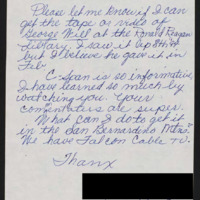 Please let me know if I can
get the tape or video of
George Will at the Ronald Reagan
Library. I saw it
but I believe he gave it in
Feb.
C-Span is so informative
I have learned so much by
watching you. Your
commentators are super.
What can I do to get it
in the San Bernardino Metro?
We have Falcon Cable TV.
Thanx